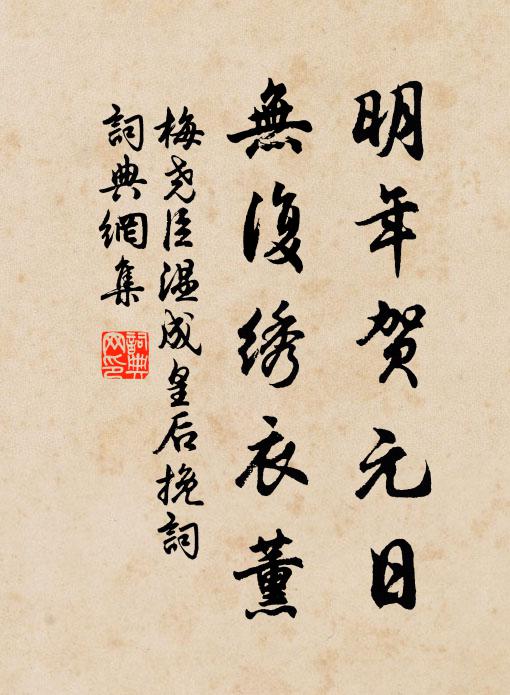 明年贺元日
無復綉衣薰
梅尧臣温成皇后挽詞
詞典網集
詞典网印